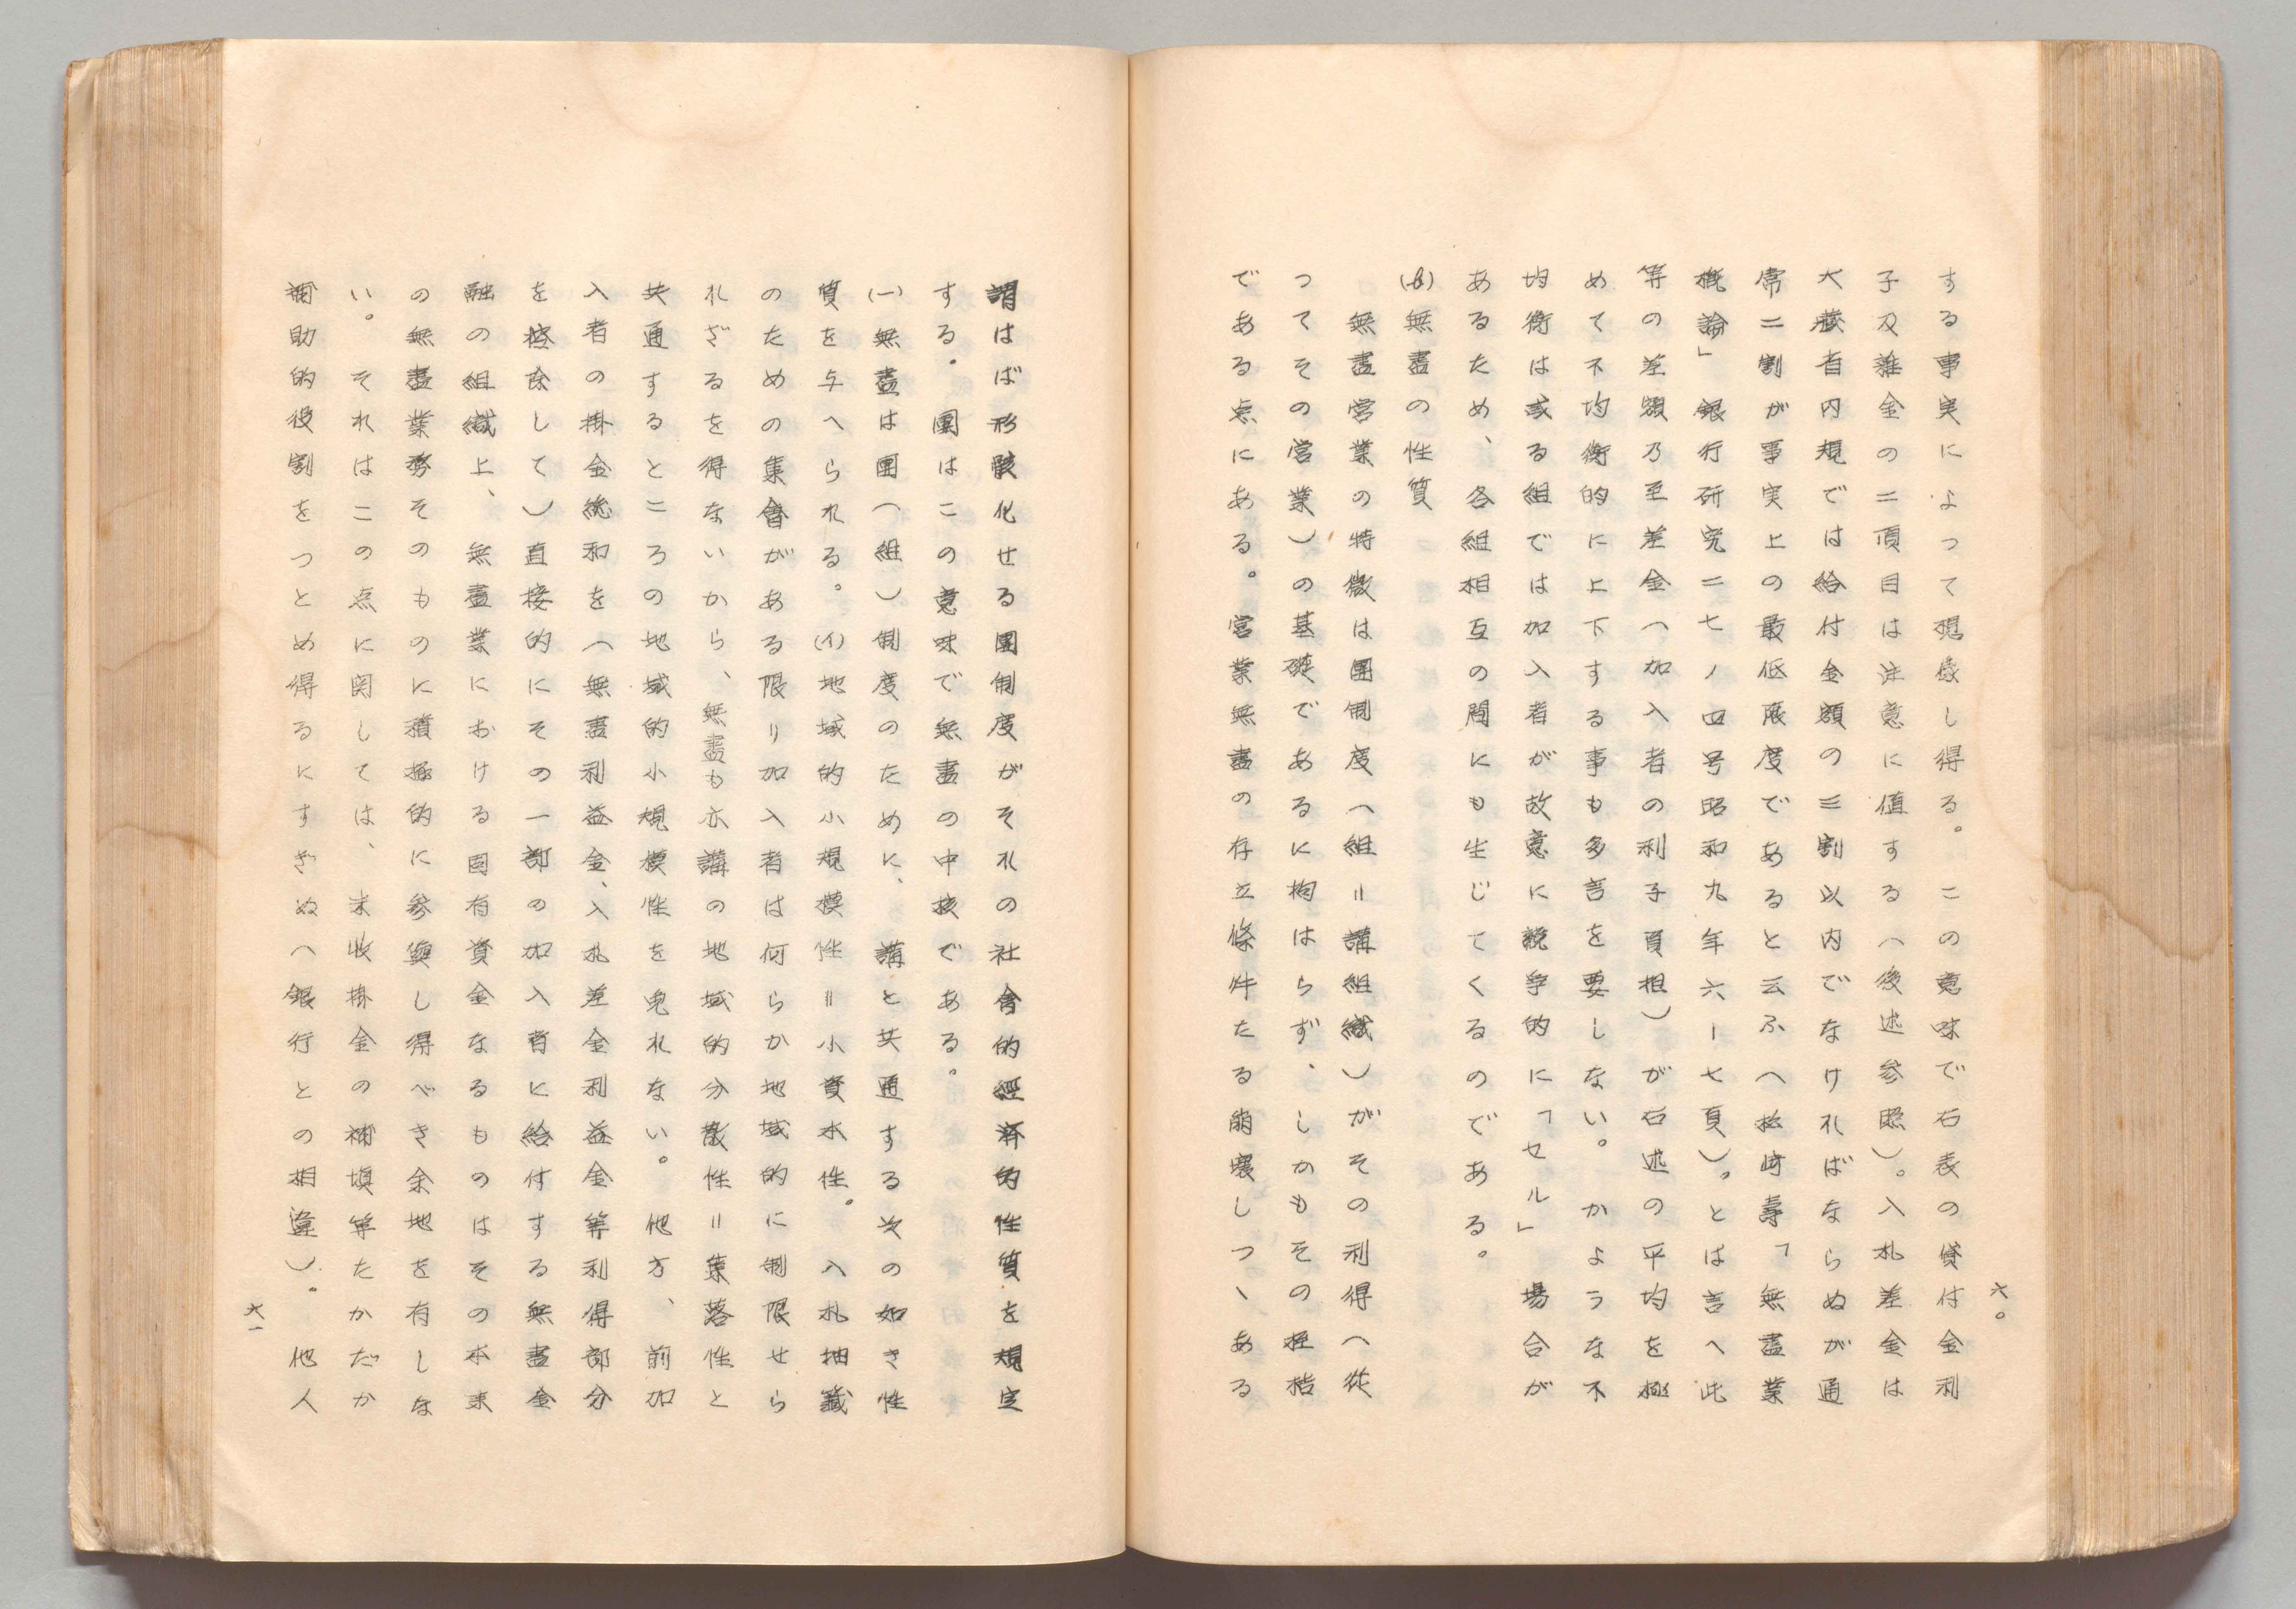 する事実によって想像し得る。この意味で右表の貸付金利
子及雑金の二項目は注意に値する（後述参照）。入札差金は
大藏省内規では給付金額の三割以内でなければならぬが通
常二割が事実上の最低限度であると云ふ（松崎壽「無盡業
概論」銀行研究二七ノ四号昭和九年六ー七頁）。とは言へ此
等の差額乃至差金（加入者の利子負担）が右述の平均を極
めて不均衡的に上下する事も多言を要しない。かような不
均衡は或る組では加入者が故意に競争的に「セル」場合が
あるため、各組相互の間にも生じてくるのである。
(B)無盡の性質
無盡営業の特徴は団制度（組＝講組織）がその利得（従
ってその営業）の基礎であるに拘はらず、しかもその桎梏
である点にある。営業無盡の存立條件たる崩壊しつゝある
六〇
謂はば形骸化せる團制度がそれの社會的經済的性質を規定
する。團はこの意味で無盡の中核である。
(一)無盡は團（組）制度のために、講と共通する次の如き性
質を与へられる。(イ)地域的小規模性＝小資本性。入札抽籤
のための集會がある限り加入者は何らか地域的に制限せら
れざるを得ないから、無盡も亦講の地域的分散性＝集落性と
共通するところの地域的小規模性を免れない。他方、前加
入者の掛金総和を（無盡利益金、入札差金利益金等利得部分
を控除して）直接的にその一部の加入者に給付する無盡金
融の組織上、無盡業における固有資金なるものはその本来
の無盡業務そのものに積極的に参與し得べき余地を有しな
い。それはこの点に関しては、未收掛金の補填等たかだか
補助的役割をつとめ得るにすぎぬ（銀行との相違）。他人
六一